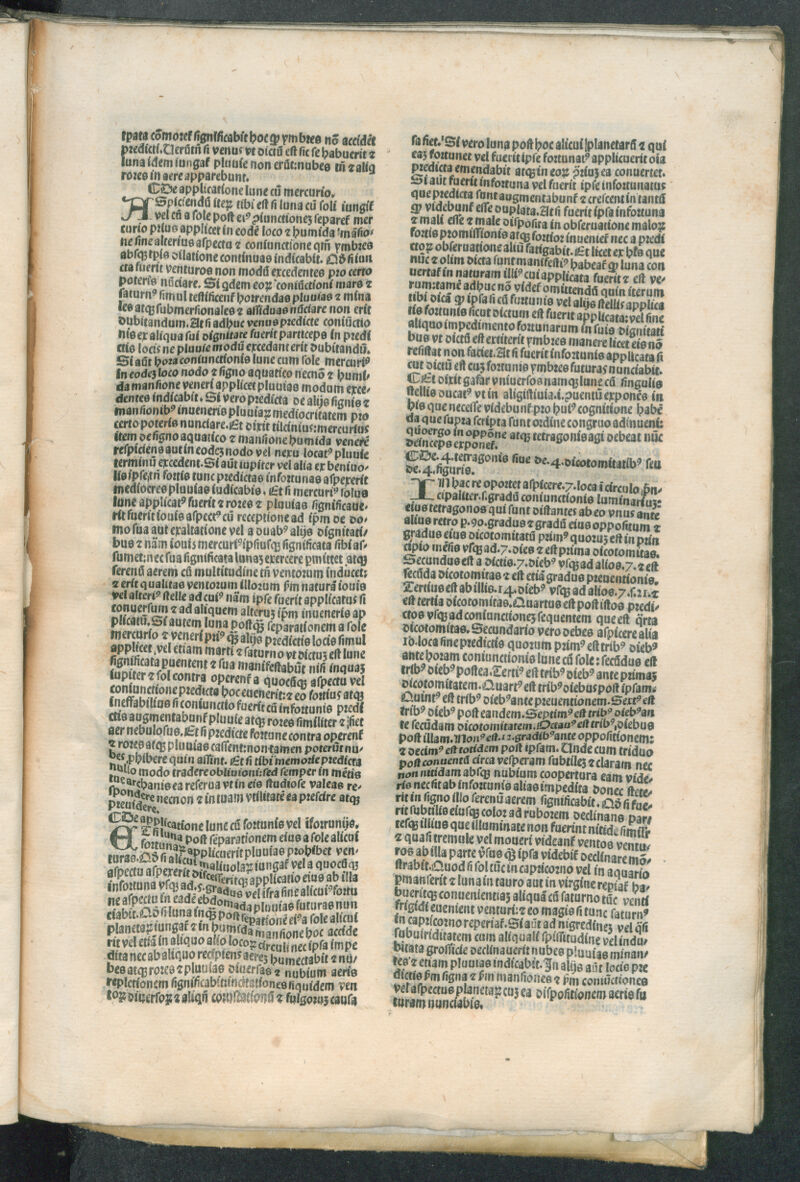 tpata cõmoret significabit hoc ꝙ ymbres nõ accidẽt
predicti. Uerũtñ si venus vt dictũ est sic se habuerit ⁊
luna idem iungaẗ pluuie non erũt: nubes tñ ⁊ aliq
rores in aere apparebunt.
⸿De applicatione lune cũ mercurio.
ASpiciendũ iteꝝ tibi est si luna cũ soli iungit
vel cũ a sole post eiꝰ ꝯiunctioneꝫ separet mer
curio prius applicet in eodẽ loco ⁊ humida mãsio-
ne sine alterius aspectu ⁊ coniunctione qm̃ ymbres
absqꝫ tp̃is dilatione continuas indicabit. Qð si iun
cta fuerit venturos non modũ excedentes pro certo
poteris nũciare. Si qdem eoꝝ coniũctioni mars ⁊
saturnꝰ simul testificent̃ horrendas pluuias ⁊ mina
les atqꝫ submersionales ⁊ assiduas nũciare non erit
dubitandum. At si adhuc venus predicte coniũctio
nis ex aliqua sui dignitate fuerit particeps in predi
ctis locis ne pluuie modũ excedant erit dubitandũ.
Si aũt hora coniunctionis lune cum sole mercuriꝰ
in eodeꝫ loco nodo ⁊ signo aquatico necnõ ⁊ humi-
da mansione veneri applicet pluuias modum exce-
dentes indicabit. Si vero predicta de alijs signis ⁊
mansionibꝰ inueneris pluuiaꝝ mediocritatem pro
certo poteris nunciare. Et dixit tilcinius: mercurius
item de signo aquatico ⁊ mansione humida venerẽ
respiciens aut in eodeꝫ nodo vel nexu locatꝰ pluuie
terminũ excedent. Si aũt iupiter vel alia ex beniuo-
lis ipse tñ fortis tunc predictas infortunas aspexerit
mediocres pluuias iudicabis. Et si mercuriꝰ solus
lune applicatꝰ fuerit ⁊ rores ⁊ pluuias significaue-
rit fuerit iouis aspectꝰ cũ receptione ad ip̃m de do-
mo sua aut exaltatione vel a duabꝰ alijs dignitati-
bus ⁊ nãm iouis mercuriꝰ ipsiusqꝫ significata sibi as-
sumet: nec sua significata lunaꝫ exercere ꝑmittet atqꝫ
serenũ aerem cũ multitudine tñ ventorum inducet:
⁊ erit qualitas ventorum illorum ẜm naturã iouis
vel alteriꝰ stelle ad cuiꝰ nãm ipse fuerit applicatus si
conuersum ⁊ ad aliquem alteruꝫ ip̃m inueneris ap
plicatũ. Si autem luna postqꝫ separationem a sole
mercurio ⁊ veneri priꝰ qꝫ alijs predictis locis simul
applicet, vel etiam marti ⁊ saturno vt dictuꝫ est lune
significata puentent ⁊ sua manifestabũt nisi inquaꝫ
iupiter ⁊ sol contra operent̃ a quocũqꝫ aspectu vel
coniunctione predicta hoc euenerit: ⁊ eo fortius atqꝫ
ineffabilius si coniunctio fuerit cũ infortunis predi
ctis augmentabunt̃ pluuie atqꝫ rores similiter ⁊ fiet
aer nebulosus. Et si predicte fortune contra operent̃
⁊ rores atqꝫ pluuias cassent: non tamen poterũt nu-
bes ꝓhibere quin assint. Et si tibi memorie predicta
nullo modo tradere obliuioni: sed semper in mẽtis
tue archanis ea reserua vt in eis studiose valeas re-
spondere necnon ⁊ in tuam vtilitatẽ ea prescire atqꝫ
preuidere.
⸿De applicatione lune cũ fortunis vel ifortunijs.
ET si luna post separationem eius a sole alicui
fortunaꝝ applicuerit pluuias prohibet ven-
turas. Qð si alicui maliuolaꝝ iungaẗ vel a quocũqꝫ
aspectu aspexerit discesseritqꝫ applicatio eius ab illa
infortuna vsqꝫ ad .5. gradus vel ifra sine alicuiꝰ fortu
ne aspectu in eadẽ ebdomada pluuias futuras nun
ciabit. Qð si luna inqꝫ post separationẽ eiꝰ a sole alicui
planetaꝝ iungaẗ ⁊ in humida mansione hoc accide
rit vel etiã in aliquo alio locoꝝ circuli nec ipsa impe
dita nec ab aliquo recipiens aereꝫ humectabit ⁊ nu-
bes atqꝫ rores ⁊ pluuias diuersas ⁊ nubium aeris
repletionem significabit: incitationes siquidem ven
toꝝ diuersoꝝ ⁊ aliqñ coruscationũ ⁊ fulgoruꝫ causa
sa fiet. Si vero luna post hoc alicui planetarũ ⁊ qui
eaꝫ fortunet vel fuerit ipse fortunatꝰ applicuerit oĩa
predicta emendabit atqꝫ in eoꝝ ꝯ̃rium ea conuertet.
Si aũt fuerit infortuna vel fuerit ipse infortunatus
que predicta sunt augmentabunt̃ ⁊ crescent in tantũ
ꝙ videbunt̃ esse duplata. At si fuerit ipsa infortuna
⁊ mali esse ⁊ male disposita in obseruatione maloꝝ
fortis promissionis atqꝫ fortior inuenieẗ nec a predi
ctoꝝ obseruatione aliũ fatigabit. Et licet ex his que
nũc ⁊ olim dicta sunt manifestũ habeaẗ ꝙ luna con
uertaẗ in naturam illiꝰ cui applicata fuerit ⁊ est ve-
rum: tamẽ adhuc nõ videẗ omittendũ quin iterum
tibi dicã ꝙ ipsa si cũ fortunis vel alijs stellis applica
tis fortunis sicut dictum est fuerit applicata: vel sine
aliquo impedimento fortunarum in suis dignitati
bus vt dictũ est extiterit ymbres manere licet eis nõ
resistat non faciet. At si fuerit infortunis applicata si
cut dictũ est cuꝫ fortunis ymbres futuras nunciabit.
⸿Et dixit gafar vniuersos namqꝫ lune cũ singulis
stellis ducatꝰ vt in aligistiuia .i. ꝓuentũ exponẽs in
his que necesse videbunt̃ pro huiꝰ cognitione habẽ
da que supra scripta sunt ordine congruo adinueni:
quoergo in oppõne atqꝫ tetragonis agi debeat nũc
deinceps exponeẗ.
⸿De .4. tetragonis siue de .4. dicotomitatibꝰ seu
de .4. figuris.
IN hac re oportet aspicere .7. loca ĩ circulo pñ-
cipaliter .s. gradũ coniunctionis luminariuꝫ:
eius tetragonos qui sunt distantes ab eo vnus ante
alius retro p .90. gradus ⁊ gradũ eius oppositum ⁊
gradus eius dicotomitatũ primꝰ quoruꝫ est in prin
cipio mẽsis vsqꝫ ad .7. dies ⁊ est prima dicotomitas.
Secundus est a dictis .7. diebꝰ vsqꝫ ad alios .7. ⁊ est
secũda dicotomitas ⁊ est etiã gradus preuentionis.
Tertius est ab illis .14. diebꝰ vsqꝫ ad alios .7. s. 21. ⁊
est tertia dicotomitas. Quartus est post istos predi-
ctos vsqꝫ ad coniunctioneꝫ sequentem que est qrta
dicotomitas. Secundario vero debes aspicere alia
10. loca sine predictis quorum primꝰ est tribꝰ diebꝰ
ante horam coniunctionis lune cũ sole: secũdus est
tribꝰ diebꝰ postea. Tertiꝰ est tribꝰ diebꝰ ante primaꝫ
dicotomitatem. Quartꝰ est tribꝰ diebus post ipsam.
Quintꝰ est tribꝰ diebꝰ ante preuentionem. Sextꝰ est
tribꝰ diebꝰ post eandem. Septimꝰ est tribꝰ diebꝰ an
te secũdam dicotomitatem. Octauꝰ est tribꝰ diebus
post illam. Nonꝰ est .12. gradibꝰ ante oppositionem:
⁊ decimꝰ est totidem post ipsam. Unde cum triduo
post conuentũ circa vesperam subtileꝫ ⁊ claram nec
non nitidam absqꝫ nubium coopertura eam vide-
ris nec sit ab infortunis alias impedita donec stete-
rit in signo illo serenũ aerem significabit. Qð si fue-
rit subtilis eiusqꝫ color ad ruborem declinans par-
tesqꝫ illius que illuminate non fuerint nitide simil̃r
⁊ quasi tremule vel moueri videanẗ ventos ventu-
ros ab illa parte ṽsus qꝫ ipsa videbiẗ declinare mõ-
strabit. Quod si sol tũc in capricorno vel in aquario
ꝑmanserit ⁊ luna in tauro aut in virgine repiaẗ ha-
bueritqꝫ conuenientiaꝫ aliquã cũ saturno tũc venti
frigidi euenient venturi: ⁊ eo magis si tunc saturnꝰ
in capricorno reperiaẗ. Si aũt ad nigredineꝫ vel q̃si
subuiriditatem cum aliquali spissitudine vel indu-
bitata grossicie declinauerit nubes pluuias minan-
tes ⁊ etiam pluuias indicabit. In alijs aũt locis pre
dictis ẜm signa ⁊ ẜm mansiones ⁊ ẜm coniũctiones
vel aspectus planetaꝝ cuꝫ ea dispositionem aeris fu
turam nunciabis.